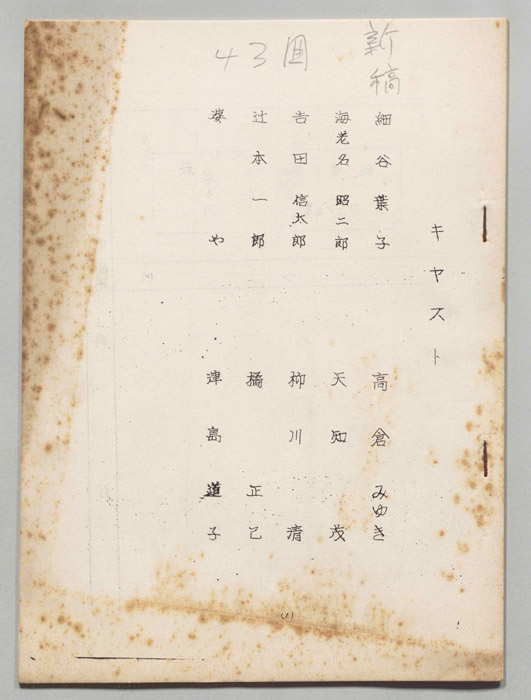 新稿
43回
キヤスト
細谷葉子 高倉みゆき
海老名昭二郎 天知茂
吉田信太郎 柳川清
辻本一郎 橘正己
婆や 津島道子
(1)